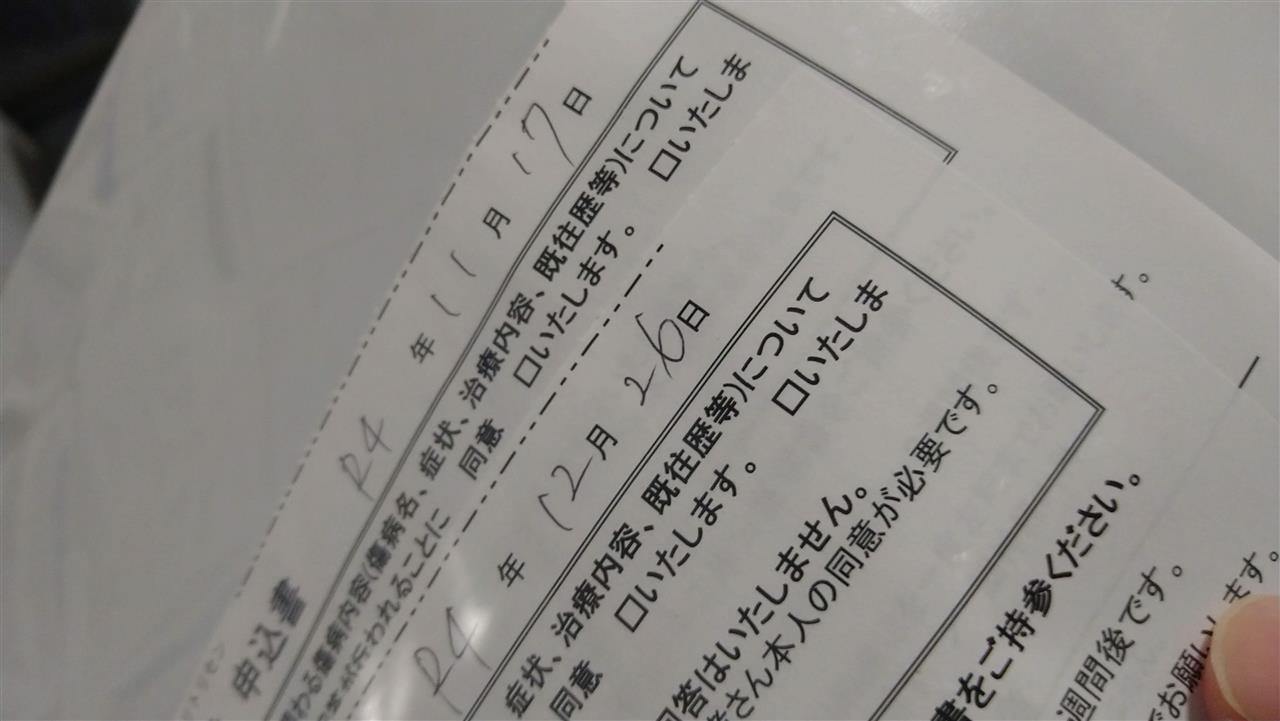 申込書
R4 年 11 月 17 日
傷病内容(傷病名、症状、治療内容、既往歴等)について
われることに 同意 □いたします。 □いたしま
R4 年 12 月 26 日
症状、治療内容、既往歴等)について
同意 □いたします。 □いたしま
回答はいたしません。
さん本人の同意が必要です。
す。
書をご持参ください。
週間後です。
お願い
ます。